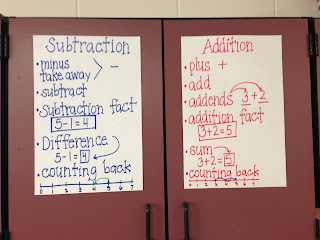 Subtraction
• minus
take away > −
• subtract
• Subtraction fact
5-1=4
• Difference
5-1=4
• counting back
0 1 2 3 4 5 6 7
Addition
• plus +
• add
• addends 3+2
• addition fact
3+2=5
• sum
3+2=5
• counting back
0 1 2 3 4 5 6 7